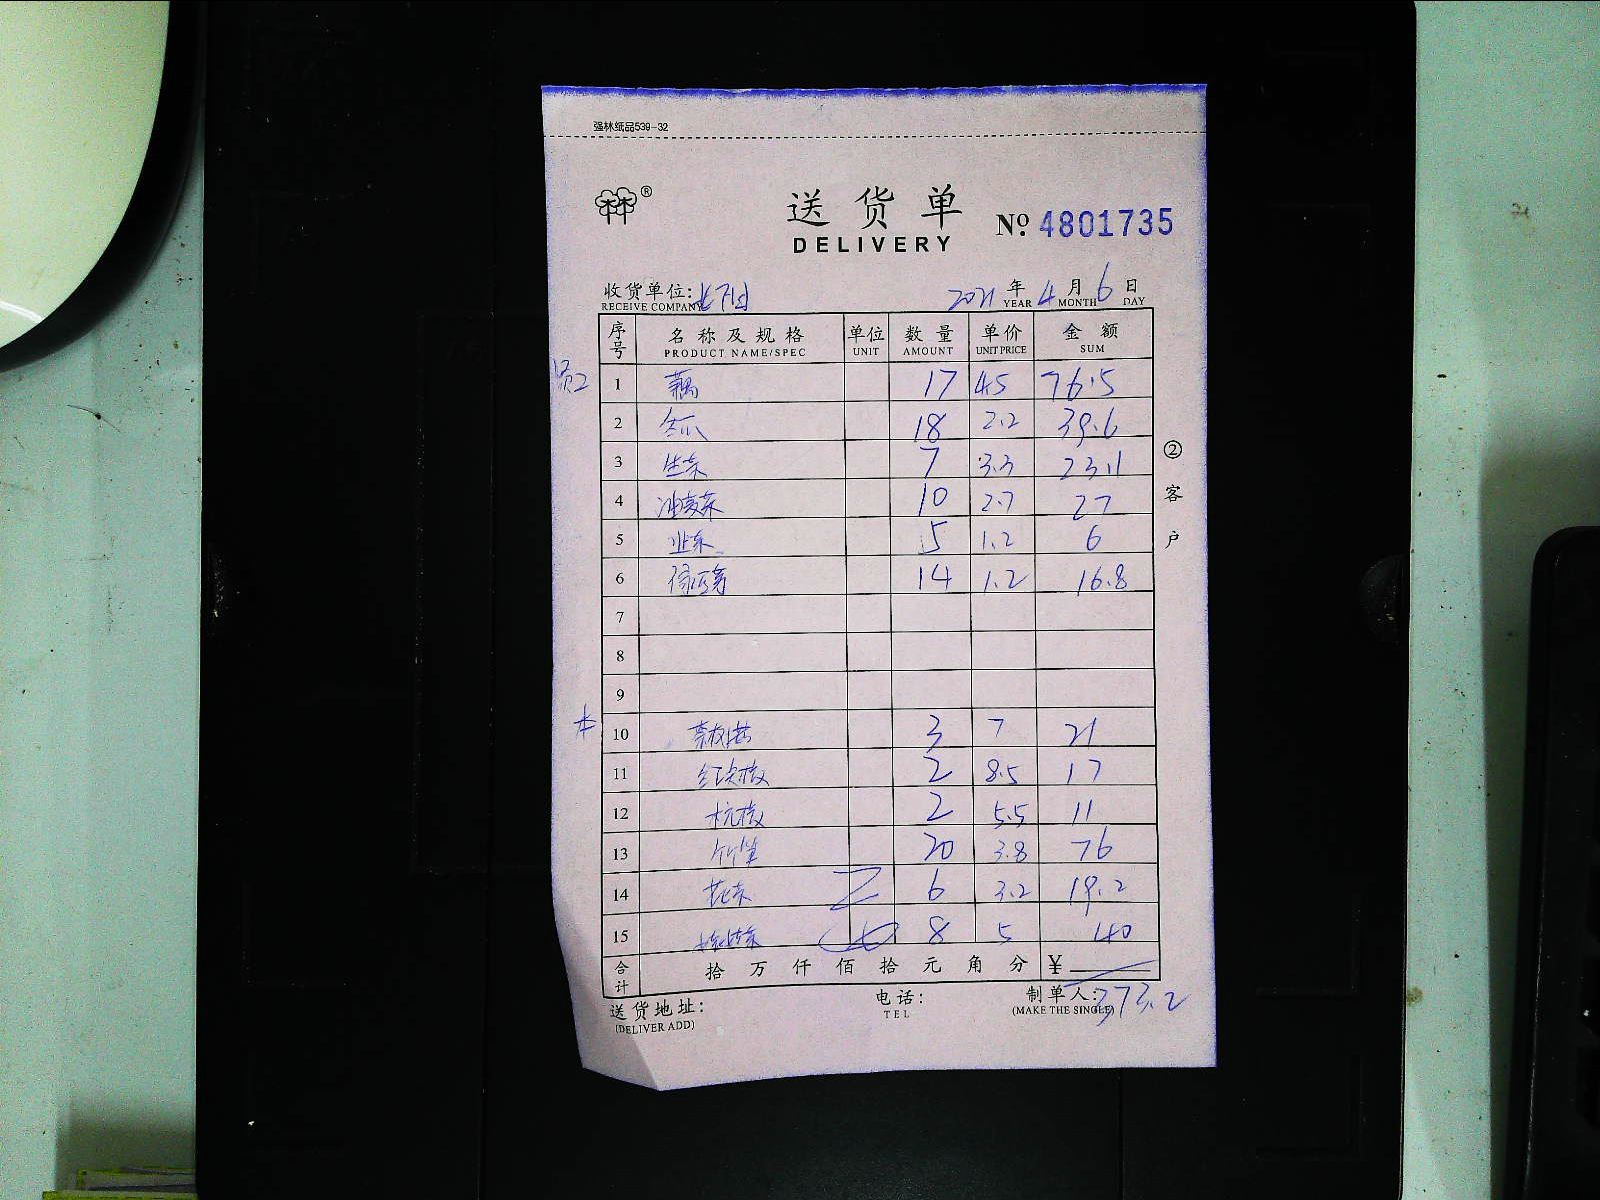 强林纸品539-32
®
送货单
DELIVERY
Nº 4801735
收货单位:
RECEIVE COMPANY
2021 年 4 月 6 日
YEAR MONTH DAY
序号 名称及规格 单位 数量 单价 金额
PRODUCT NAME/SPEC UNIT AMOUNT UNIT PRICE SUM
员工 1 藕 17 4.5 76.5
2 冬瓜 18 2.2 39.6
3 生菜 7 3.3 23.1
4 油麦菜 10 2.7 27
5 5 1.2 6
6 14 1.2 16.8
7
8
9
10 3 7 21
11 红尖椒 2 8.5 17
12 杭椒 2 5.5 11
13 竹笋 20 3.8 76
14 花菜 6 3.2 19.2
15 8 5 40
合计 拾 万 仟 佰 拾 元 角 分 ¥
373.2
送货地址:
(DELIVER ADD)
电话:
TEL
制单人:
(MAKE THE SINGLE)
②客户